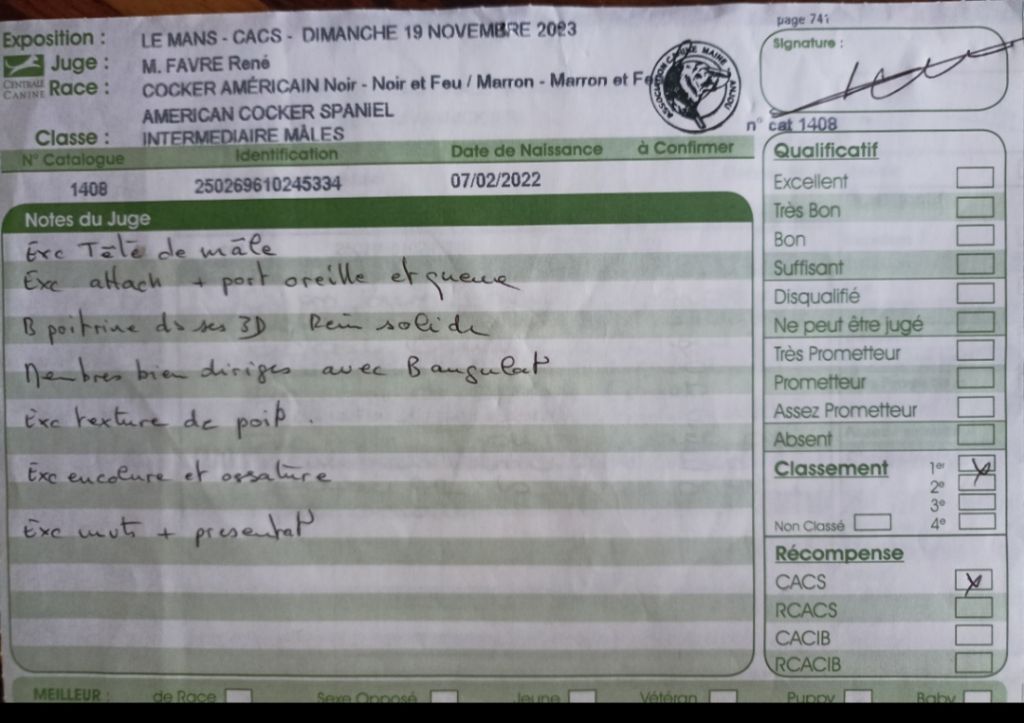 page 741
Exposition : LE MANS - CACS - DIMANCHE 19 NOVEMBRE 2023
Juge : M. FAVRE René
CENTRALE CANINE
Race : COCKER AMÉRICAIN Noir - Noir et Feu / Marron - Marron et Fe
AMERICAN COCKER SPANIEL
Classe : INTERMEDIAIRE MÂLES
ASSOCIATION CANINE MAINE ANJOU
Signature :
n° cat 1408
N° Catalogue Identification Date de Naissance à Confirmer
1408 250269610245334 07/02/2022
Notes du Juge
Exc Tête de mâle
Exc attach + port oreille et queue
B poitrine ds ses 3D Rein solide
Membres bien diriges avec B angulat°
Exc texture de poil.
Exc encolure et ossature
Exc mvts + presentat°
Qualificatif
Excellent
Très Bon
Bon
Suffisant
Disqualifié
Ne peut être jugé
Très Prometteur
Prometteur
Assez Prometteur
Absent
Classement 1er X
2e
3e
Non Classé 4e
Récompense
CACS X
RCACS
CACIB
RCACIB
MEILLEUR : de Race Sexe Opposé Jeune Vétéran Puppy Baby